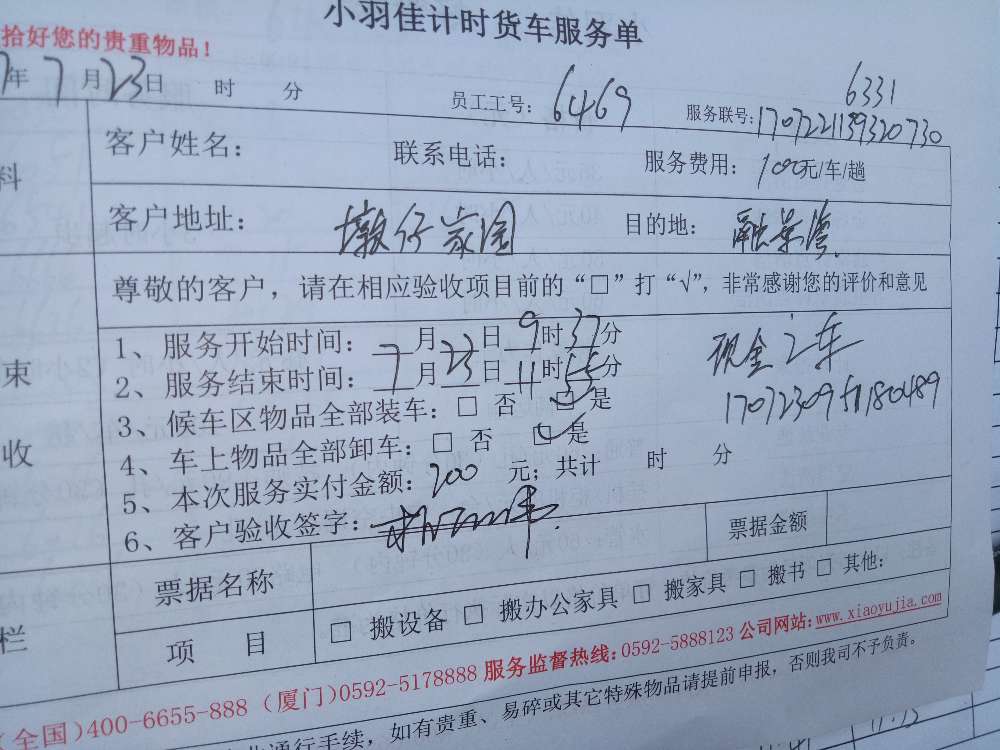 小羽佳计时货车服务单
拾好您的贵重物品！
年 7 月 23 日 时 分 员工工号：6469 服务联号：170722113932073 0
6331
料
客户姓名： 联系电话： 服务费用：100元/车/趟
客户地址：墩仔家园 目的地：融景湾
尊敬的客户，请在相应验收项目前的“□”打“√”，非常感谢您的评价和意见
束
收
1、服务开始时间：7月23日9时37分
2、服务结束时间：7月23日11时55分
3、候车区物品全部装车：□ 否 ☑ 是
4、车上物品全部卸车：□ 否 ☑ 是
5、本次服务实付金额：200 元；共计 时 分
6、客户验收签字：
现金 2车
栏
票据名称 票据金额
项 目 □ 搬设备 □ 搬办公家具 □ 搬家具 □ 搬书 □ 其他：
(全国)400-6655-888 (厦门)0592-5178888 服务监督热线：0592-5888123 公司网站：www.xiaoyujia.com
通行手续，如有贵重、易碎或其它特殊物品请提前申报，否则我司不予负责。